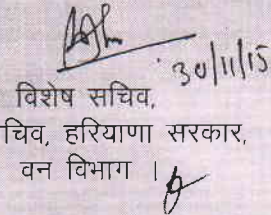 30/11/15
विशेष सचिव,
चिव, हरियाणा सरकार,
वन विभाग ।